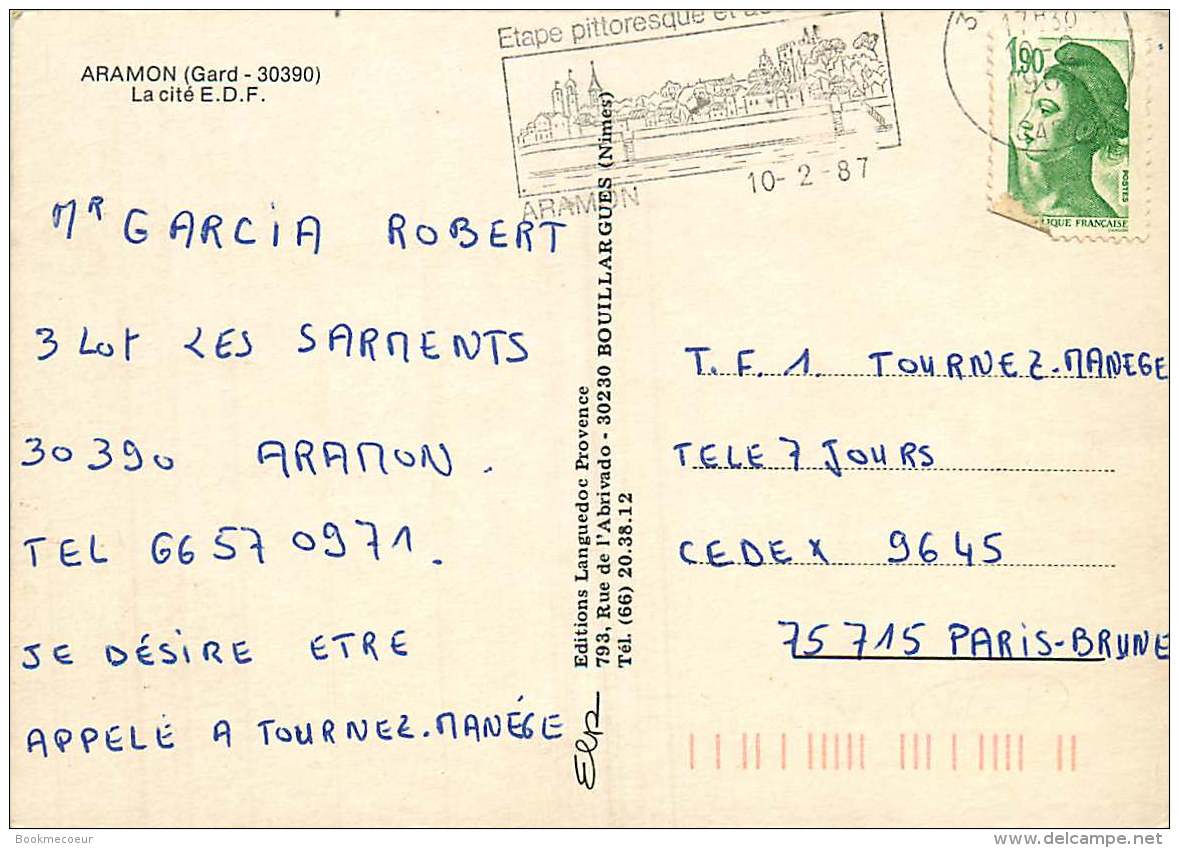 ARAMON (Gard - 30390)
La cité E.D.F.
Etape pittoresque et
ARAMON
10-2-87
17H30
10-2
1,90
POSTES
LIQUE FRANÇAISE
MR GARCIA ROBERT
3 Lot LES SARMENTS
30390 ARAMON.
TEL 66570971.
JE DÉSIRE ETRE
APPELÉ A TOURNEZ-MANÉGE
Editions Languedoc Provence
793, Rue de l'Abrivado - 30230 BOUILLARGUES (Nimes)
Tél. (66) 20.38.12
T.F.1. TOURNEZ-MANEGE
TELE 7 JOURS
CEDEX 9645
75715 PARIS-BRUNE
Bookmecoeur
www.delcampe.net